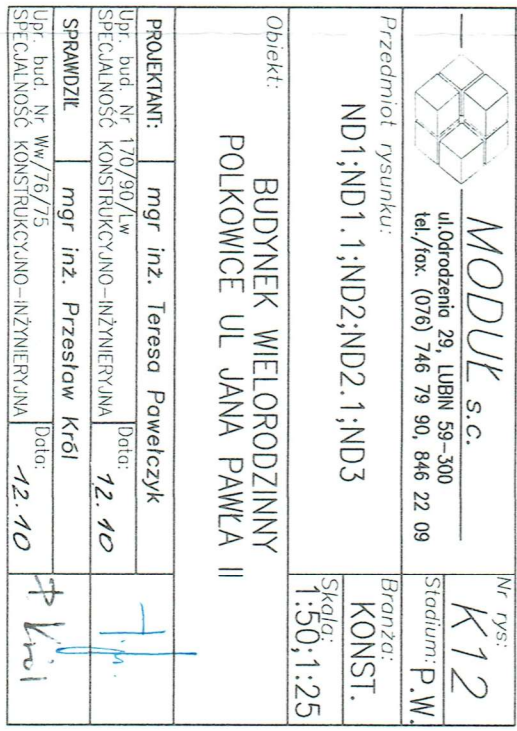 MODUŁ s.c.
ul.Odrodzenia 29, LUBIN 59-300
tel./fax. (076) 746 79 90, 846 22 09
Nr rys:
K12
Stadium: P.W.
Przedmiot rysunku:
ND1;ND1.1;ND2;ND2.1;ND3
Branża:
KONST.
Skala:
1:50;1:25
Obiekt:
BUDYNEK WIELORODZINNY
POLKOWICE UL JANA PAWŁA II
PROJEKTANT: mgr inż. Teresa Pawełczyk
Upr. bud. Nr 170/90/Lw
SPECJALNOŚĆ KONSTRUKCYJNO-INŻYNIERYJNA
Data:
12.10
SPRAWDZIŁ mgr inż. Przesław Król
Upr. bud. Nr Ww/76/75
SPECJALNOŚĆ KONSTRUKCYJNO-INŻYNIERYJNA
Data:
12.10
P Król